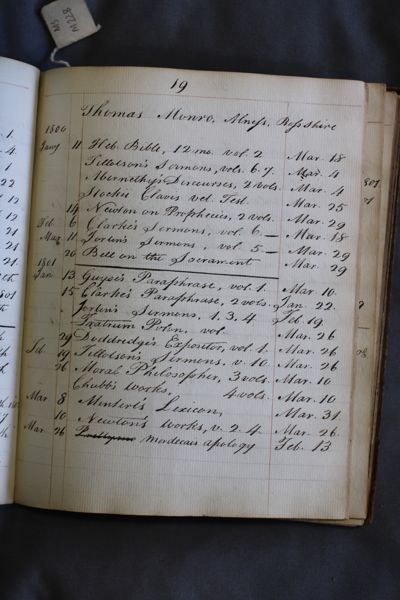 MS
M 228
19
Thomas Monro, Alness, Rossshire
1800
Jany 11 Heb. Bible, 12mo. vol. 2 Mar. 18
Tillotson's Sermons, vols. 6. 7. Mar. 4
Abernethy's Discourses, 2 vols. Mar. 4
Stockii Clavis vet. Test. Mar. 25
14 Newton on Prophecies, 2 vols. Mar. 29
Feb. 6 Clarke's Sermons, vol. 6 — Mar. 18
Mar. 11 Jortin's Sermons, vol 5 — Mar. 29
20 Bell on the Sacrament Mar. 29
1801
Jan. 13 Guyse's Paraphrase, vol. 1. Mar. 10.
15 Clarke's Paraphrase, 2 vols. Jan. 22.
Jortin's Sermons, 1. 3. 4 Feb. 19
Fratrum Polon. vol Mar. 26
29 Doddredge's Expositor, vol. 1. Mar. 26
Feb. 19 Tillotson's Sermons, v. 10. Mar. 26
26 Moral Philosopher, 3 vols. Mar. 10
Chubb's works, 4 vols. Mar. 10
Mar. 8 Mintert's Lexicon, Mar. 31
10 Newton's works, v. 2. 4. Mar. 26.
Mar. 26 Mordecais apology Feb. 13